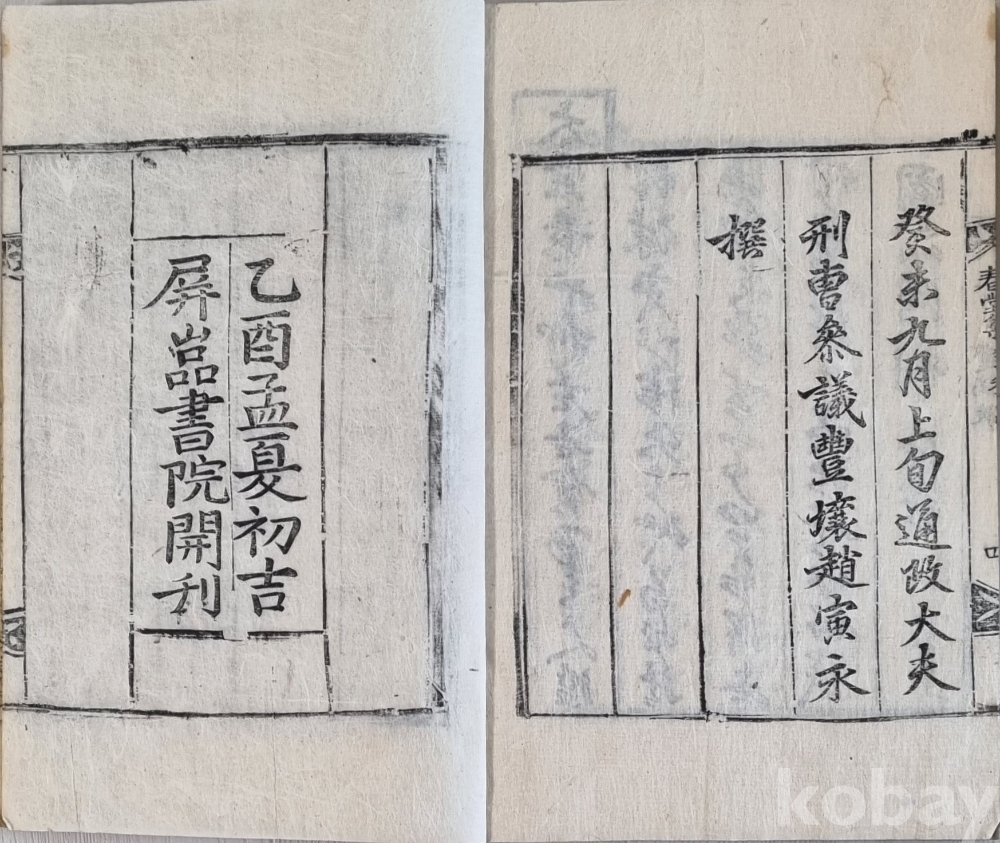 癸未九月上旬通政大夫
刑曹叅議豐壤趙寅永
撰
乙酉孟夏初吉
屛嵓書院開刋
kobay